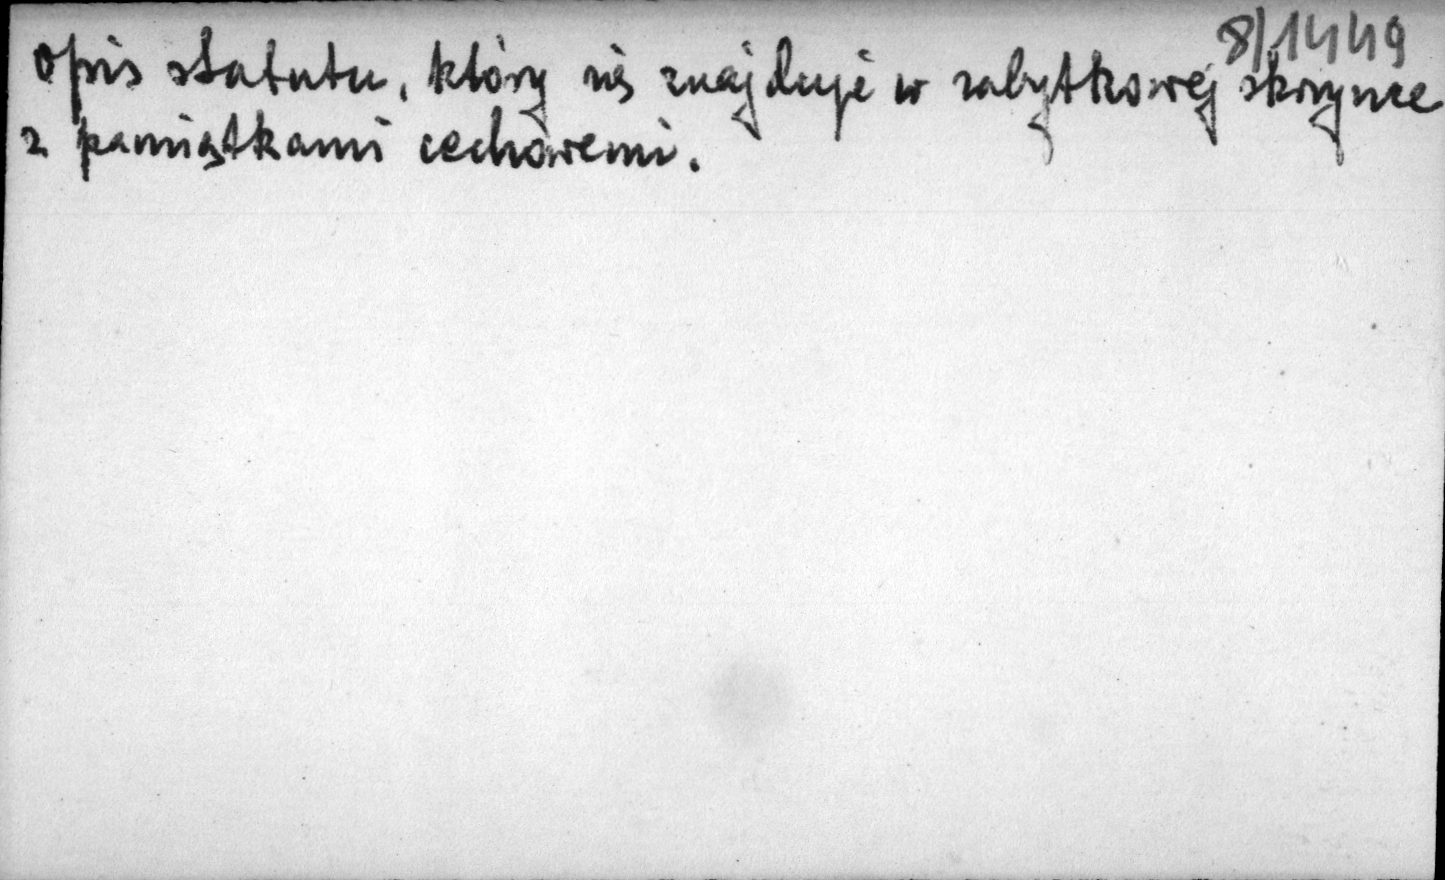 8/1449
opis statutu, który się znajduje w zabytkowej skrzynce
z pamiątkami cechowemi.